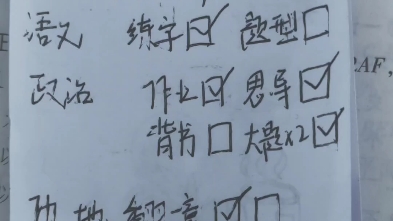 语文 练字☑ 题型☐
政治 作业☑ 思导☑
背书☐ 大题×2☑
☑☐
AF,